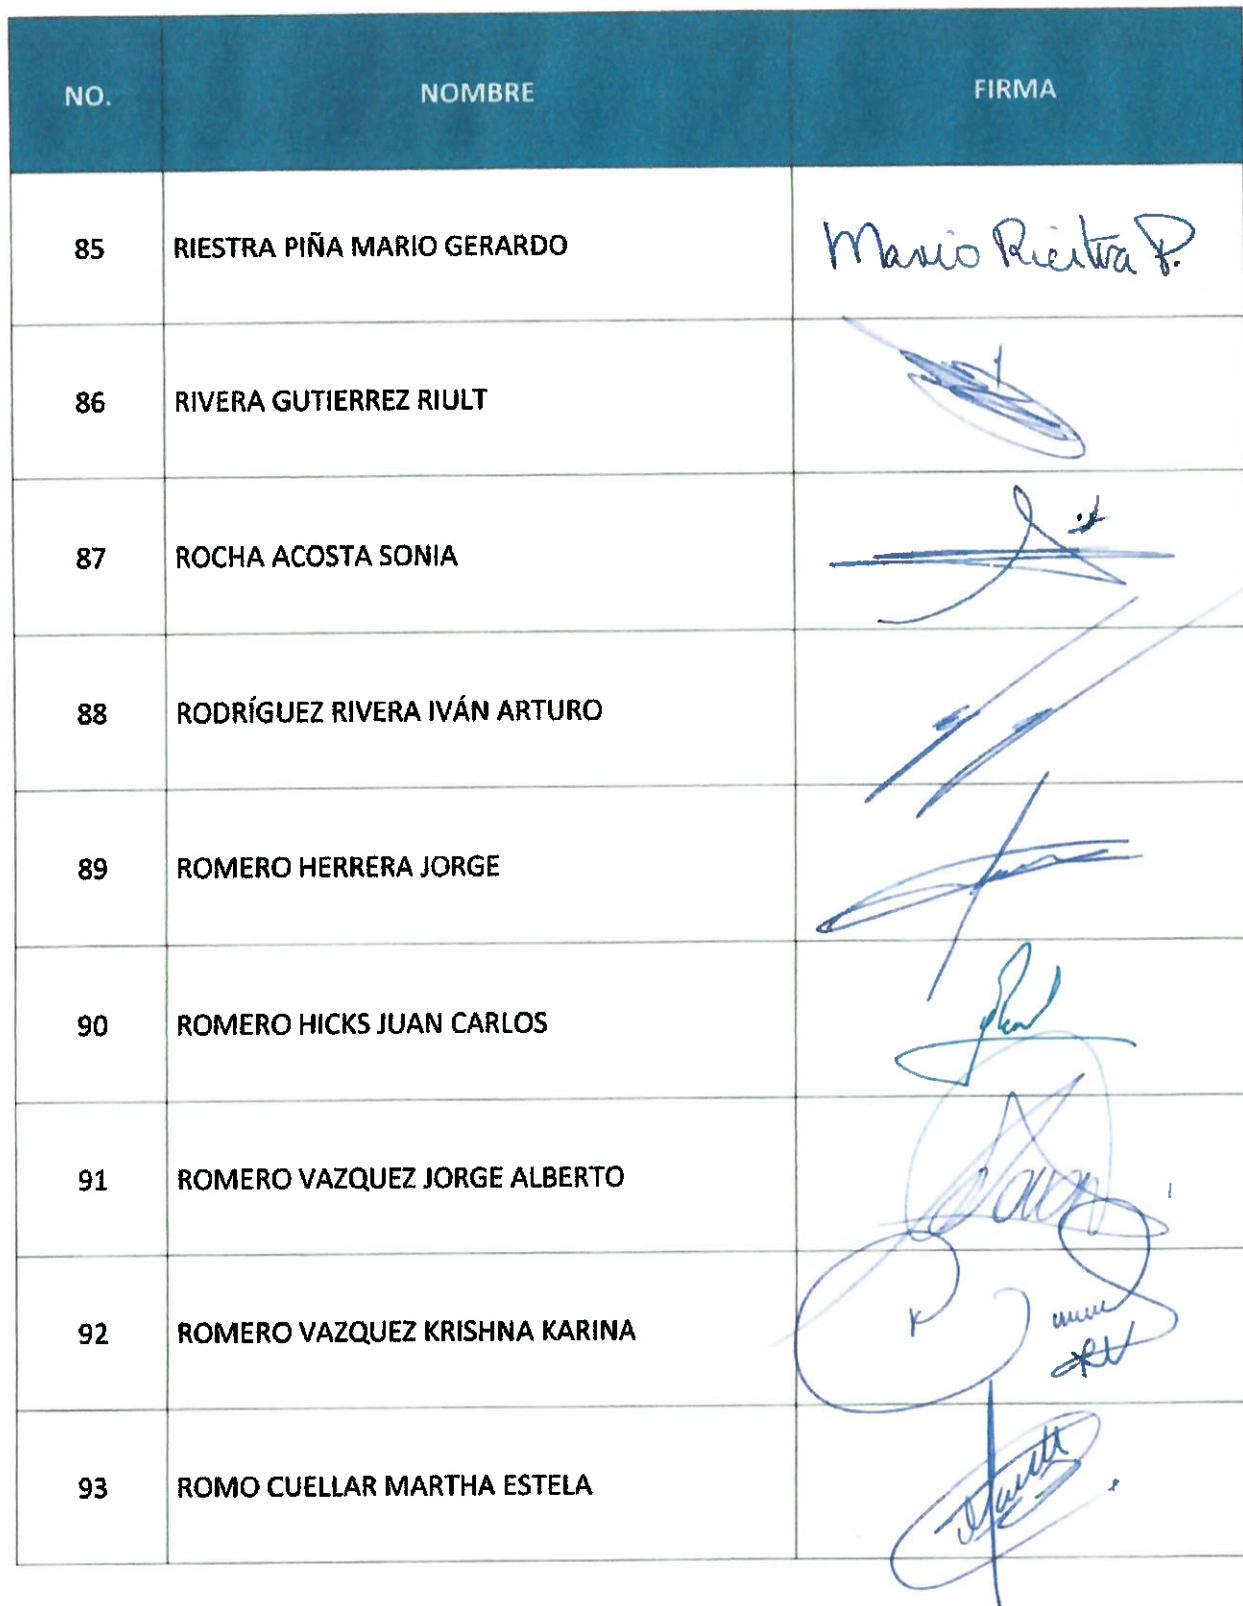 NO. NOMBRE FIRMA
85 RIESTRA PIÑA MARIO GERARDO Mario Riestra P.
86 RIVERA GUTIERREZ RIULT
87 ROCHA ACOSTA SONIA
88 RODRÍGUEZ RIVERA IVÁN ARTURO
89 ROMERO HERRERA JORGE
90 ROMERO HICKS JUAN CARLOS
91 ROMERO VAZQUEZ JORGE ALBERTO
92 ROMERO VAZQUEZ KRISHNA KARINA
93 ROMO CUELLAR MARTHA ESTELA